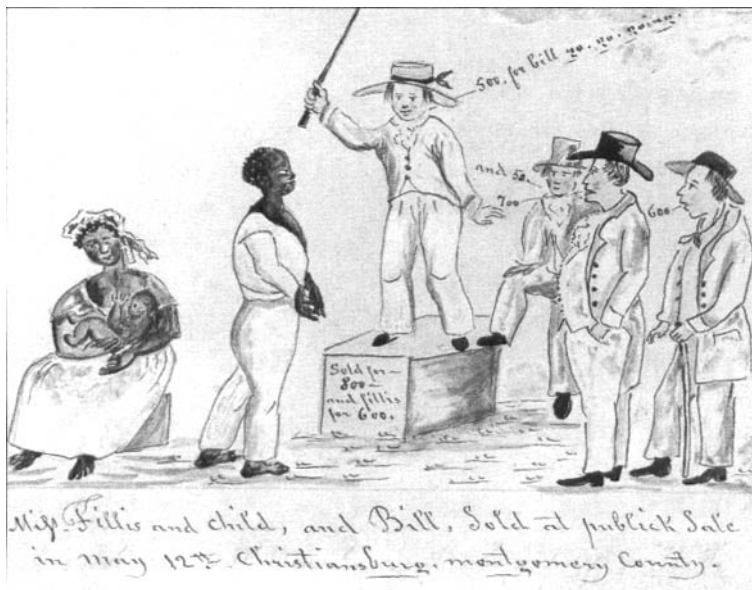 500. for bill go. go. going.
and 50.
700
600
Sold for—
800—
and fillis
for 600.
Miss. Fillis and child, and Bill, Sold at publick Sale
in may 12th. Christiansburg. montgomery County.